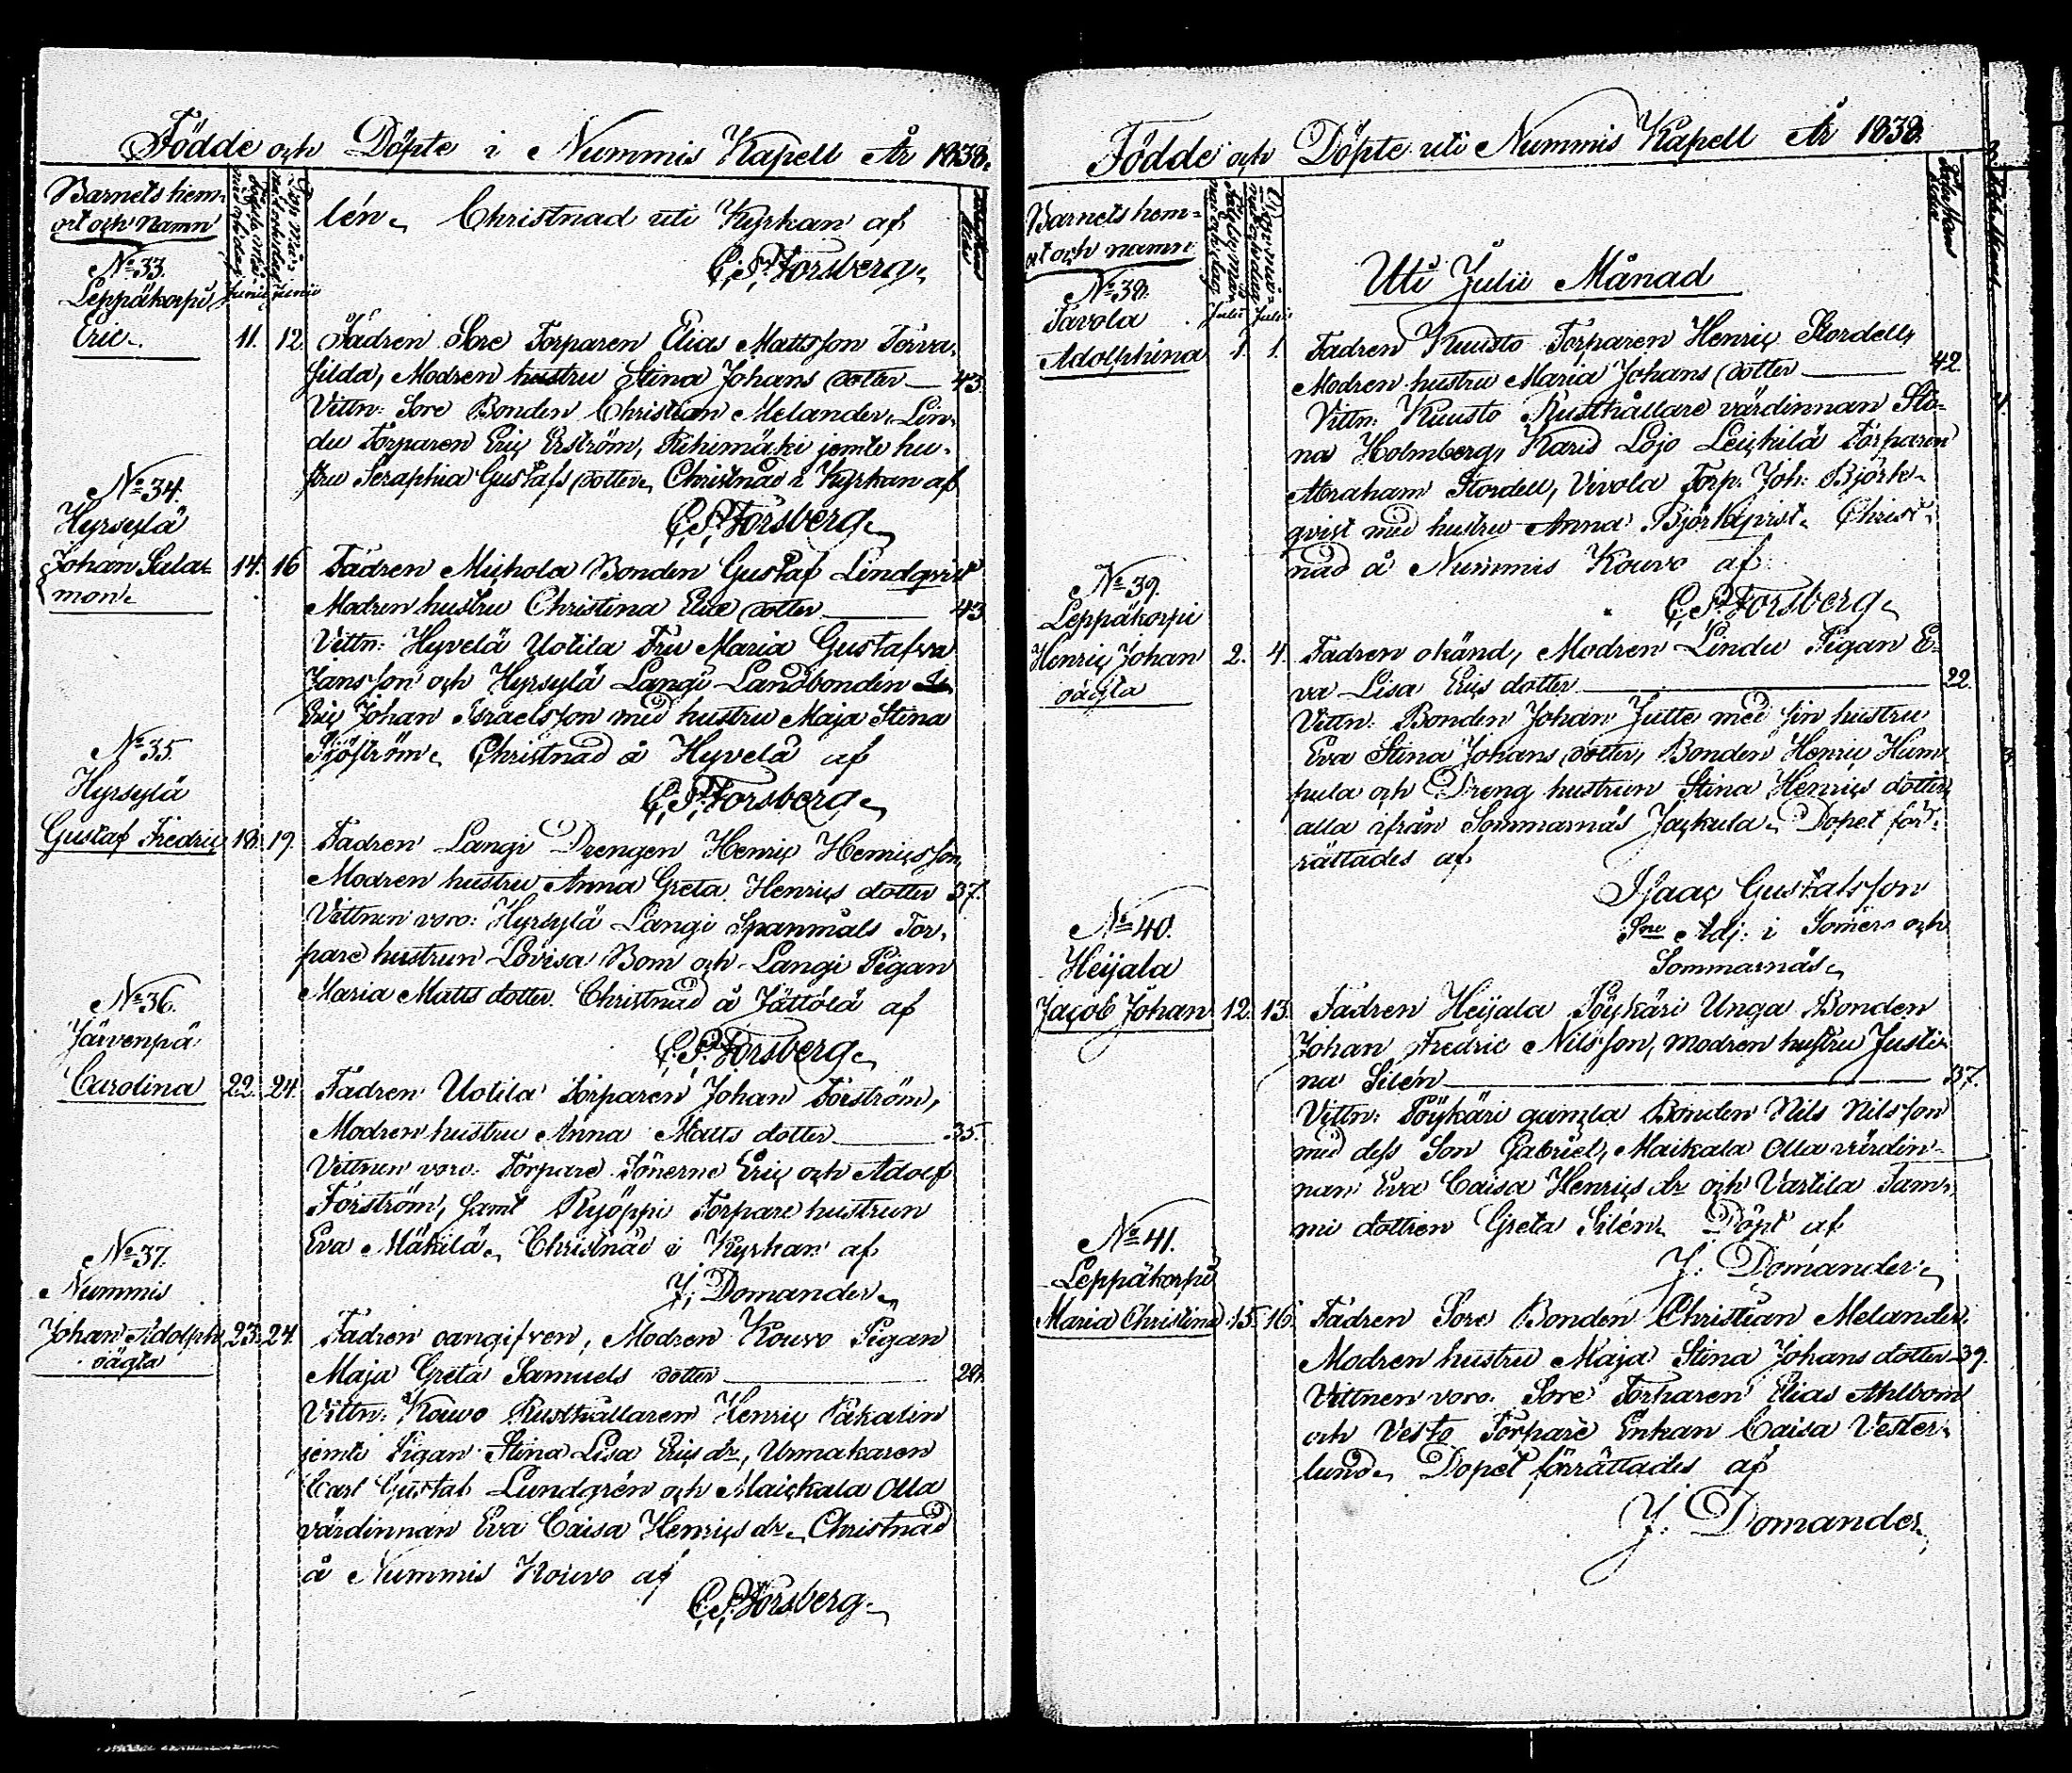 Födde och Döpte i Nummis Kapell År 1838.
Barnets hem-
ort och Namn
lén. Christnad uti Kyrkan af
C. P. Forsberg.
No 33.
Leppäkorpi
Junii Junii
Eric. 11. 12. Fadren Sore Torparen Elias Mattsson Torva,
Modren hustru Stina Johans dotter — 43.
Vittn: Sore Bonden Christian Melander, Lin-
du Torparen Eriç Erström, Rihimäki jemte hu-
stru Seraphia Gustafs dotter. Christnad i Kyrkan af
C. P. Forsberg.
No 34.
Hyrsylä
Johan Sala-
mon. 14. 16 Fadren Mickola Bonden Gustaf Lindqvist
Modren hustru Christina Eliæ dotter — 43
Vittn: Hyvelä Uotila Fru Maria Gustafva
Jansson och Hyrsylä Langi Landbonden
Eriç Johan Israelsson med hustru Maja Stina
Sjöström. Christnad å Hyvelä af
C. P. Forsberg.
No 35.
Hyrsylä
Gustaf Fredriç 18. 19. Fadren Langi Drengen Henriç Henriçsson,
Modren hustru Anna Greta Henriçs dotter 37.
Vittnen voro: Hyrsylä Langi Spanmåls Tor-
pare hustrun Lovisa Bom och Langi Pigan
Maria Matts dotter. Christnad å Jättölä af
C. P. Forsberg.
No 36.
Järvenpä
Carolina 22. 24. Fadren Uotila Torparen Johan Forström,
Modren hustru Anna Matts dotter — 35.
Vittnen voro: Torpare Sönerne Eriç och Adolf
Forström, samt Ryöppi Torpare hustrun
Eva Mäkilä. Christnad i Kyrkan af
J. Domander.
No 37.
Nummis
Johan Adolph 23. 24. Fadren oangifven, Modren Kouvo Pigan
oägta
Maja Greta Samuels dotter — 28.
Vittn: Kouvo Rusthållaren Henriç Påkalén
jemte Pigan Stina Lisa Eriçs dr, Urmakaren
Carl Gustaf Lundgrén och Maickala Olla
värdinnan Eva Caisa Henriçs dr. Christnad
å Nummis Kouvo af
C. P. Forsberg.
Födde och Döpte uti Nummis Kapell År 1838.
Barnets hem-
ort och namn
Uti Julii Månad
No 38.
Tavola
Julii Julii
Adolphina 1. 1. Fadren Kuusto Torparen Henriç Stordell,
Modren hustru Maria Johans dotter — 42.
Vittn: Kuusto Rusthållare värdinnan Sto-
na Holmberg, Karis Lojo Leickilä Torparen
Abraham Stordell, Vivola Torp. Joh: Björk-
qvist med hustru Anna Björkqvist. Christ-
nad å Nummis Kouvo af
C. P. Forsberg.
No 39.
Leppäkorpi
Henriç Johan 2. 4. Fadren okänd, Modren Lindu Pigan E-
oägta
va Lisa Eriçs dotter — 22.
Vittn: Bonden Johan Jutte med sin hustru
Eva Stina Johans dotter, Bonden Henriç Hum-
pula och Dreng hustrun Stina Henriçs dotter,
alla ifrån Sommarnäs Jaçkula. Dopet för-
rättades af
Isaaç Gustafsson
Sne Adj: i Somero och
Sommarnäs.
No 40.
Heijala
Jaçob Johan 12. 13. Fadren Heijala Pöykäri Unga Bonden
Johan Fredric Nilsson, modren hustru Justi-
na Silén — 37.
Vittn: Pöykäri gamla Bonden Nils Nilsson
med dess Son Gabriel, Maikala Olla värdin-
nan Eva Caisa Henriçs dr och Vartila Tam-
mi dottren Greta Silén. Döpt af
J. Domander.
No 41.
Leppäkorpi
Maria Christina 15. 16. Fadren Sore Bonden Christian Melander.
Modren hustru Maja Stina Johans dotter 39.
Vittnen voro: Sore Torparen Elias Ahlbom
och Vesto Torpare Enkan Caisa Vester-
lund. Dopet förrättades af
J. Domander